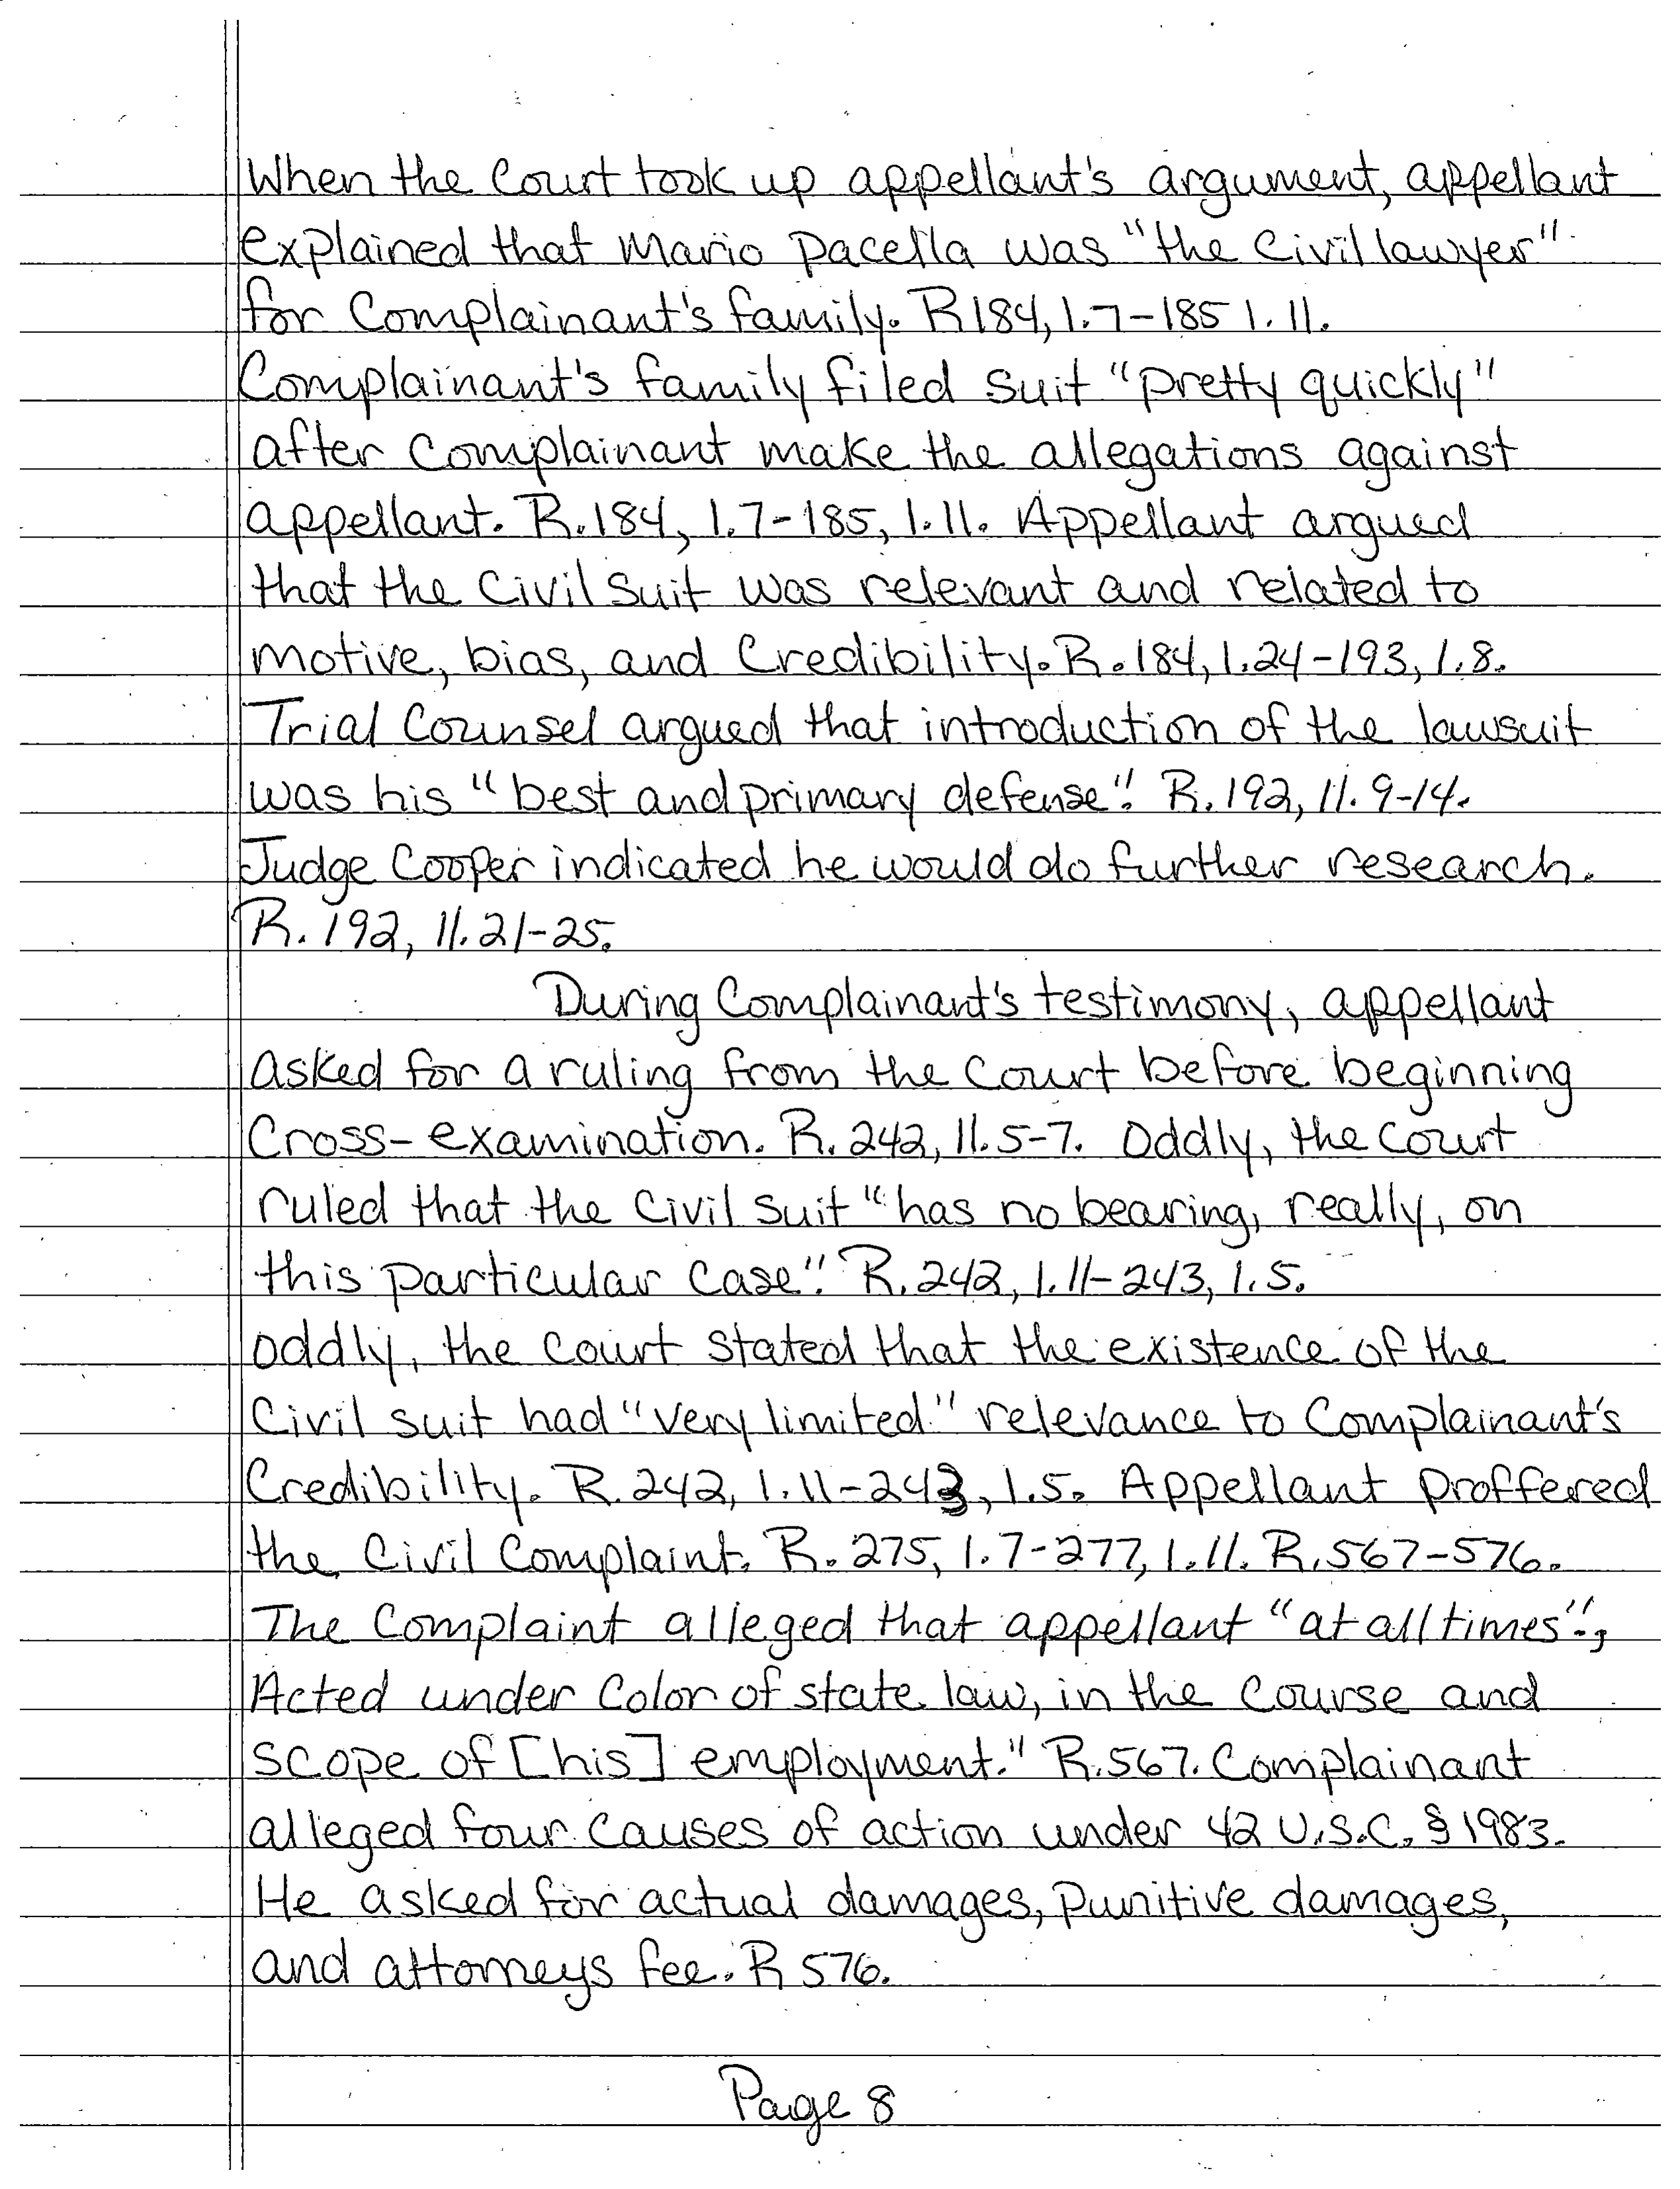 When the Court took up appellant's argument, appellant
explained that Mario Pacella was "the Civil lawyer"
for Complainant's family. R184, l.7-185 l. 11.
Complainant's family filed suit "pretty quickly"
after Complainant make the allegations against
appellant. R.184, l.7-185, l.11. Appellant argued
that the Civil Suit was relevant and related to
motive, bias, and Credibility. R.184, l.24-193, l.8.
Trial Counsel argued that introduction of the lawsuit
was his "best and primary defense". R.192, ll. 9-14.
Judge Cooper indicated he would do further research.
R. 192, ll. 21-25.
During Complainant's testimony, appellant
asked for a ruling from the Court before beginning
Cross-examination. R. 242, ll. 5-7. Oddly, the Court
ruled that the Civil Suit "has no bearing, really, on
this particular Case". R. 242, l.11-243, l.5.
Oddly, the Court stated that the existence of the
Civil suit had "very limited" relevance to Complainant's
Credibility. R. 242, l.11-243, l.5. Appellant proffered
the Civil Complaint. R. 275, l.7-277, l.11. R.567-576.
The Complaint alleged that appellant "at all times".,
Acted under Color of state law, in the Course and
scope of [his] employment." R.567. Complainant
alleged four Causes of action under 42 U.S.C. § 1983.
He asked for actual damages, punitive damages,
and attorneys fee. R 576.
Page 8